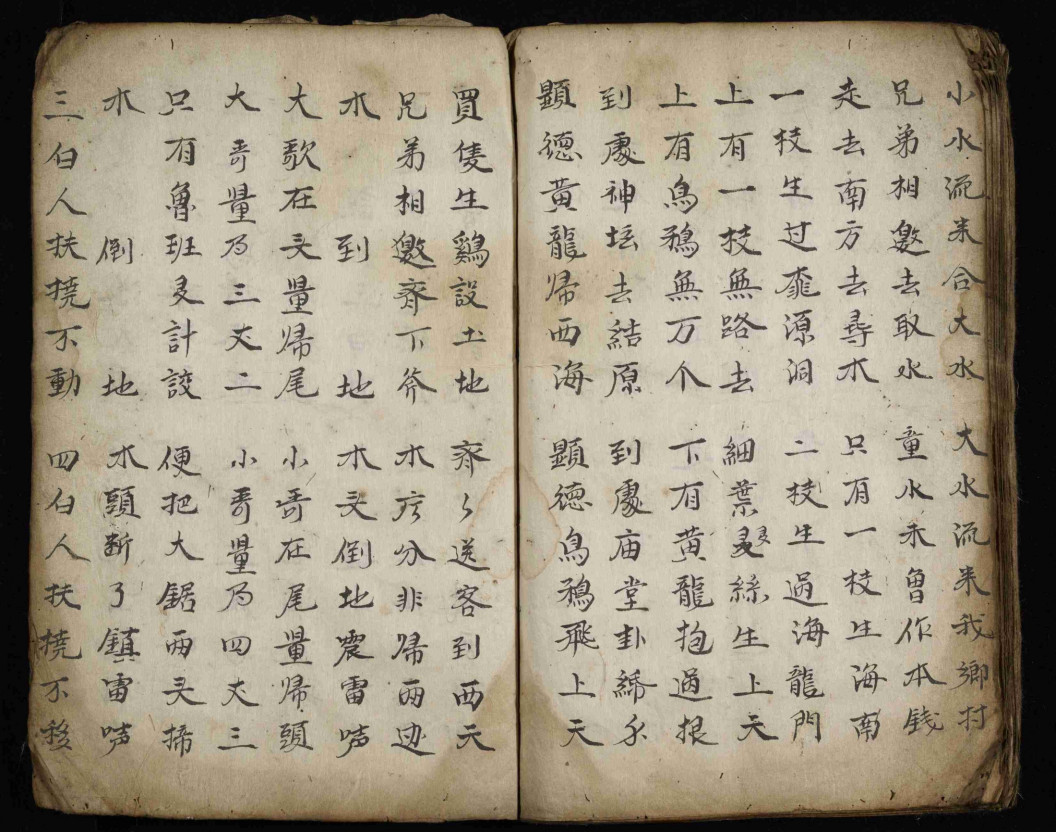 小水流来合大水 大水流来我鄉村
兄弟相邀去取水 童水未曽作本銭
走去南方去尋木 只有一枝生海南
一枝生过𠅤源洞 二枝生過海龍門
上有一枝無路去 細葉𠮨絲生上天
上有鳥鴉無万个 下有黄龍抱過根
到處神坛去結原 到處庙堂卦綵
顕德黄龍帰西海 顕徳鳥鴉飛上天
買隻生鷄設土地 齊々送客到西天
兄弟相邀齊下斧 木 分非帰両边
木到地 木头倒地震雷声
大歌在头量帰尾 小哥在尾量帰頭
大哥量乃三丈二 小哥量乃四丈三
只有魯班多計設 便把大鋸両头掃
木倒地 木頭断了鎮雷声
三伯人扶撓不動 四伯人扶撓不移